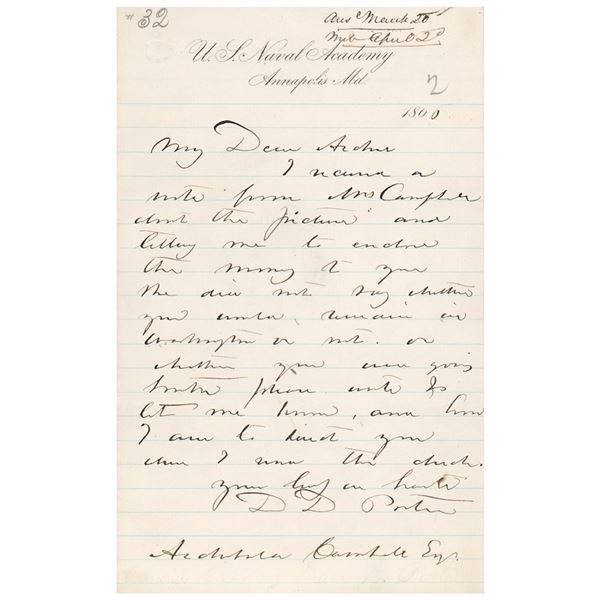 # 32
Ans March 20
U. S. Naval Academy
Annapolis Md.
2
186
My Dear Archie
I received a
note from Mrs Campbell
about the "picture" and
telling me to enclose
the money to you
She did not say whether
you would remain in
Washington or not. or
whether you were going
please write &
let me know, and how
I am to direct you
when I send the check.
yours in haste
D D Porter
Archibald Campbell Esqr.